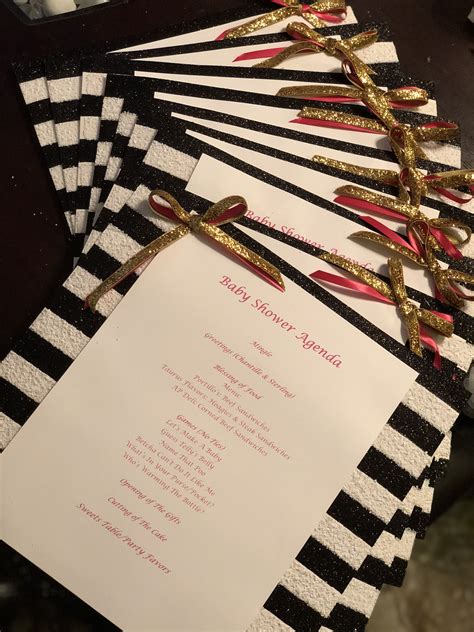 Baby Shower Agenda
Baby Shower Agenda
Mingle
Greetings (Chantille & Sterling)
Blessing of Food
Menu:
Portillo's: Beef Sandwiches
Taurus Flavors: Hoagies & Steak Sandwiches
AP Deli: Corned Beef Sandwiches
Games (No Ties)
Let's Make A Baby
Guess Telly's Belly
Name That Too
Betcha Can't Do It Like Me
What's In Your Purse/Pocket?
Who's Warming The Bottle?
Opening of The Gifts
Cutting of The Cake
Sweets Table/Party Favors